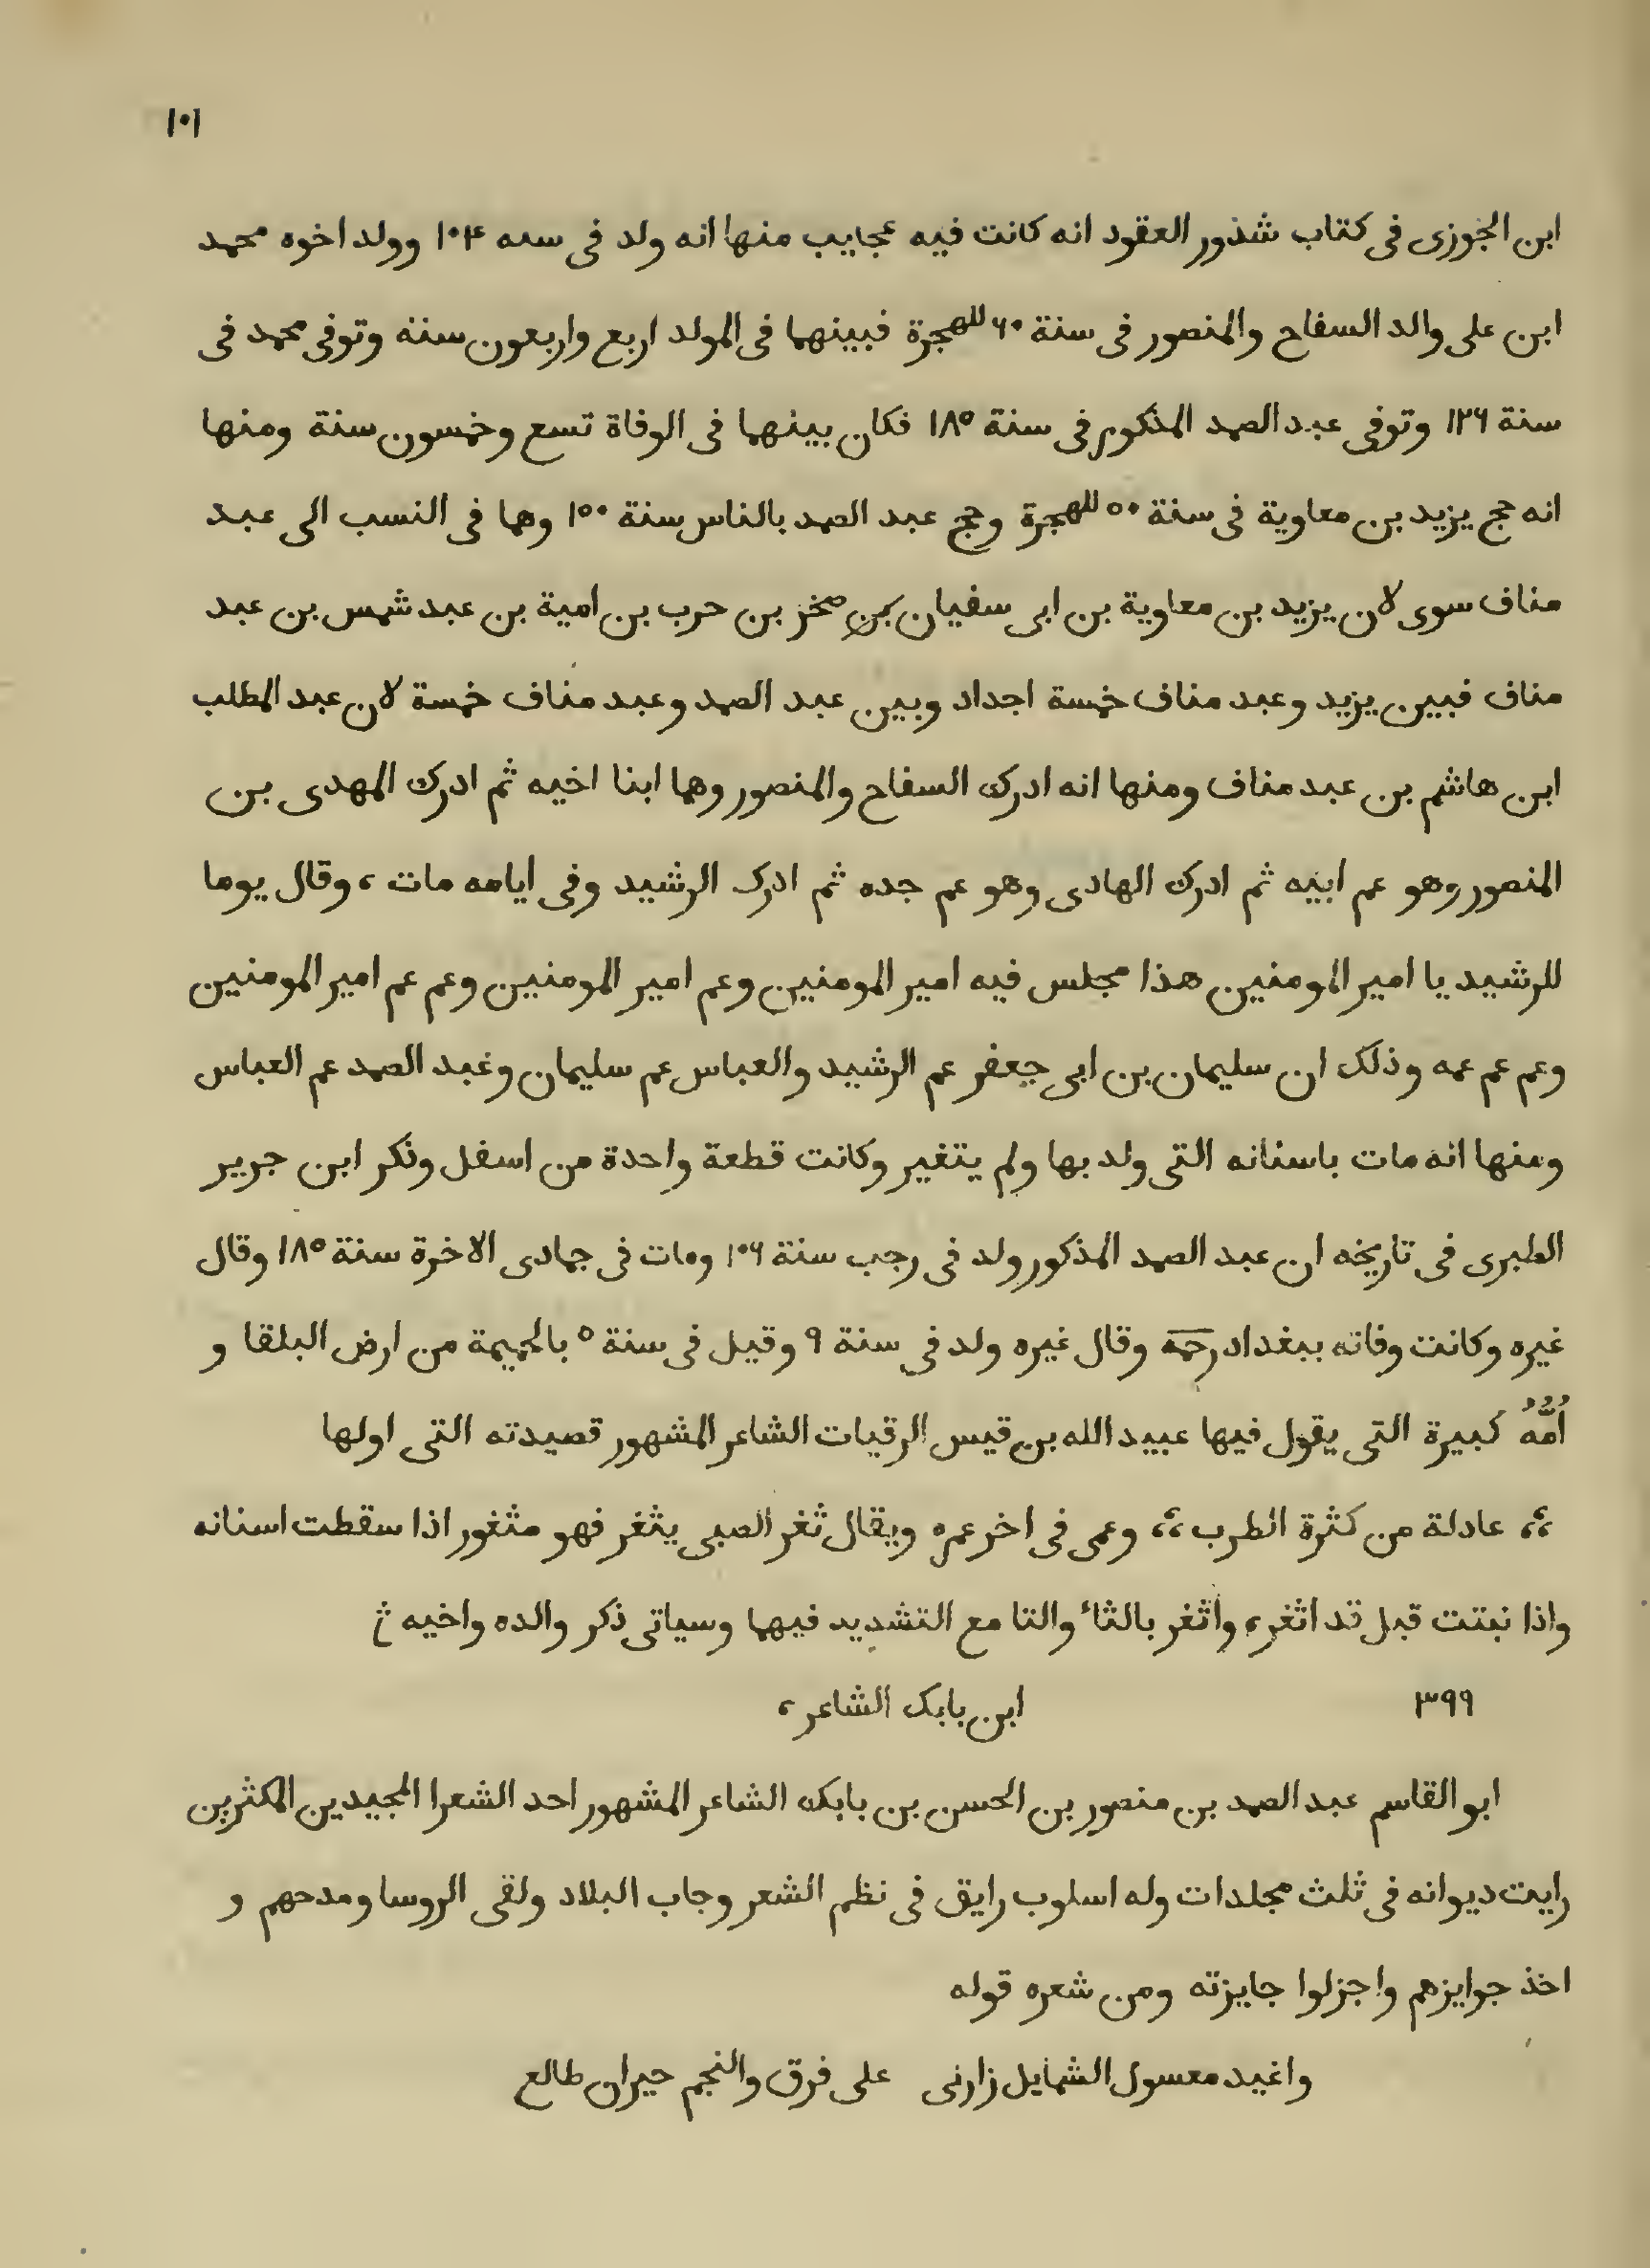 ١٠١
ابن الجوزى فى كتاب شذور العقود انه كانت فيه عجايب منها انه ولد فى سنه ١٠۴ وولد اخوه محمد
ابن على والد السفاح والمنصور فى سنة ٦٠ للهجرة فبينهما فى المولد اربع واربعون سنة وتوفى محمد فى
سنة ١٢٦ وتوفى عبد الصمد المذكور فى سنة ١٨٥ فكان بينهما فى الوفاة تسع وخمسون سنة ومنها
انه حج يزيد بن معاوية فى سنة ٥٠ للهجرة وحج عبد الصمد بالناس سنة ١٥٠ وهما فى النسب الى عبد
مناف سوى لان يزيد بن معاوية بن ابى سفيان بن صخر بن حرب بن امية بن عبد شمس بن عبد
مناف فبين يزيد وعبد مناف خمسة اجداد وبين عبد الصمد وعبد مناف خمسة لان عبد المطلب
ابن هاشم بن عبد مناف ومنها انه ادرك السفاح والمنصور وهما ابنا اخيه ثم ادرك المهدى بن
المنصور وهو عم ابيه ثم ادرك الهادى وهو عم جده ثم ادرك الرشيد وفى ايامه مات ، وقال يوما
للرشيد يا امير المومنين هذا مجلس فيه امير المومنين وعم امير المومنين وعم عم امير المومنين
وعم عم عمه وذلك ان سليمان بن ابى جعفر عم الرشيد والعباس عم سليمان وغبد الصمد عم العباس
ومنها انه مات باسنانه التى ولد بها ولم يتغير وكانت قطعة واحدة من اسفل وذكر ابن جرير
الطبرى فى تاريخه ان عبد الصمد المذكور ولد فى رجب سنة ١٠٦ ومات فى جمادى الاخرة سنة ١٨٥ وقال
غيره وكانت وفاته ببغداد رحمه وقال غيره ولد فى سنة ٩ وقيل فى سنة ٥ بالحميمة من ارض البلقا و
اُمُّهُ كبيرة التى يقول فيها عبيد الله بن قيس الرقيات الشاعر المشهور قصيدته التى اولها
،، عادلة من كثرة الطرب ،، وعمى فى اخر عمره ويقال ثغر الصبى يثغر فهو مثغور اذا سقطت اسنانه
واذا نبتت قبل قد اثغر، واتغر بالثاء والتا مع التشديد فيهما وسياتى ذكر والده واخيه
٣٩٩ ابن بابك الشاعر ،
ابو القاسم عبد الصمد بن منصور بن الحسن بن بابك الشاعر المشهور احد الشعرا المجيدين المكثرين
رايت ديوانه فى ثلث مجلدات وله اسلوب رايق فى نظم الشعر وجاب البلاد ولقى الروسا ومدحهم و
اخذ جوايزهم واجزلوا جايزته ومن شعره قوله
واغيد معسول الشمايل زارنى على فرق والنجم حيران طالع